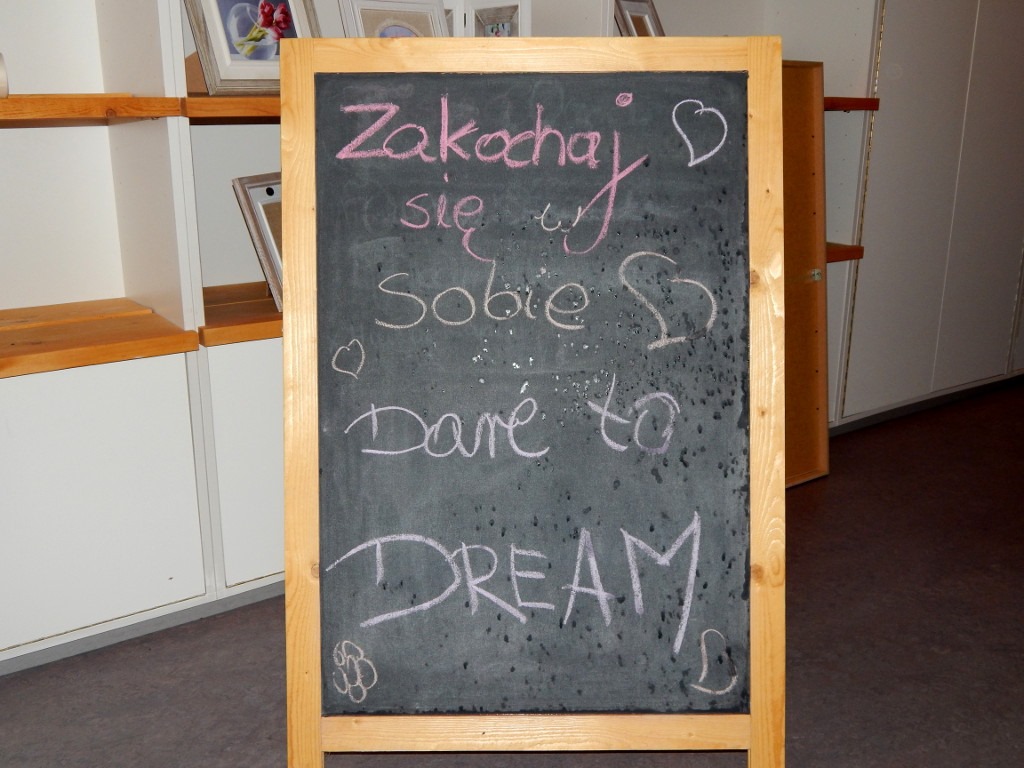 Zakochaj
się w
Sobie
Dare to
DREAM